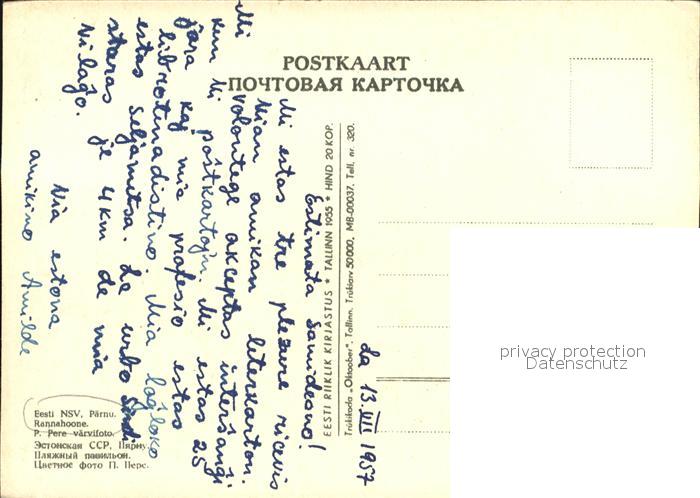 POSTKAART
ПОЧТОВАЯ КАРТОЧКА
La 13. VII 1957
Estimata Samideano!
Mi estas tre plezure ricevis
Mian amikan leterkarton.
Mi volontege akceptas interŝanĝi
kun Mi poŝtkartojn. Mi estas 25
jara kaj mia profesio estas
librotenadistino. Mia loĝloko
estas Seljametsa. La urbo Sindi
staras je 4 km de mia
Ni laĝo.
Nia estona
amikino Amilde
EESTI RIIKLIK KIRJASTUS * TALLINN 1955 * HIND 20 KOP.
Trükikoda „Oktoober“, Tallinn. Trükiarv 50000, MB-00037. Tell. nr. 320.
Eesti NSV, Pärnu.
Rannahoone.
P. Pere värvifoto.
Эстонская ССР, Пярну.
Пляжный павильон.
Цветное фото П. Пере.
privacy protection
Datenschutz